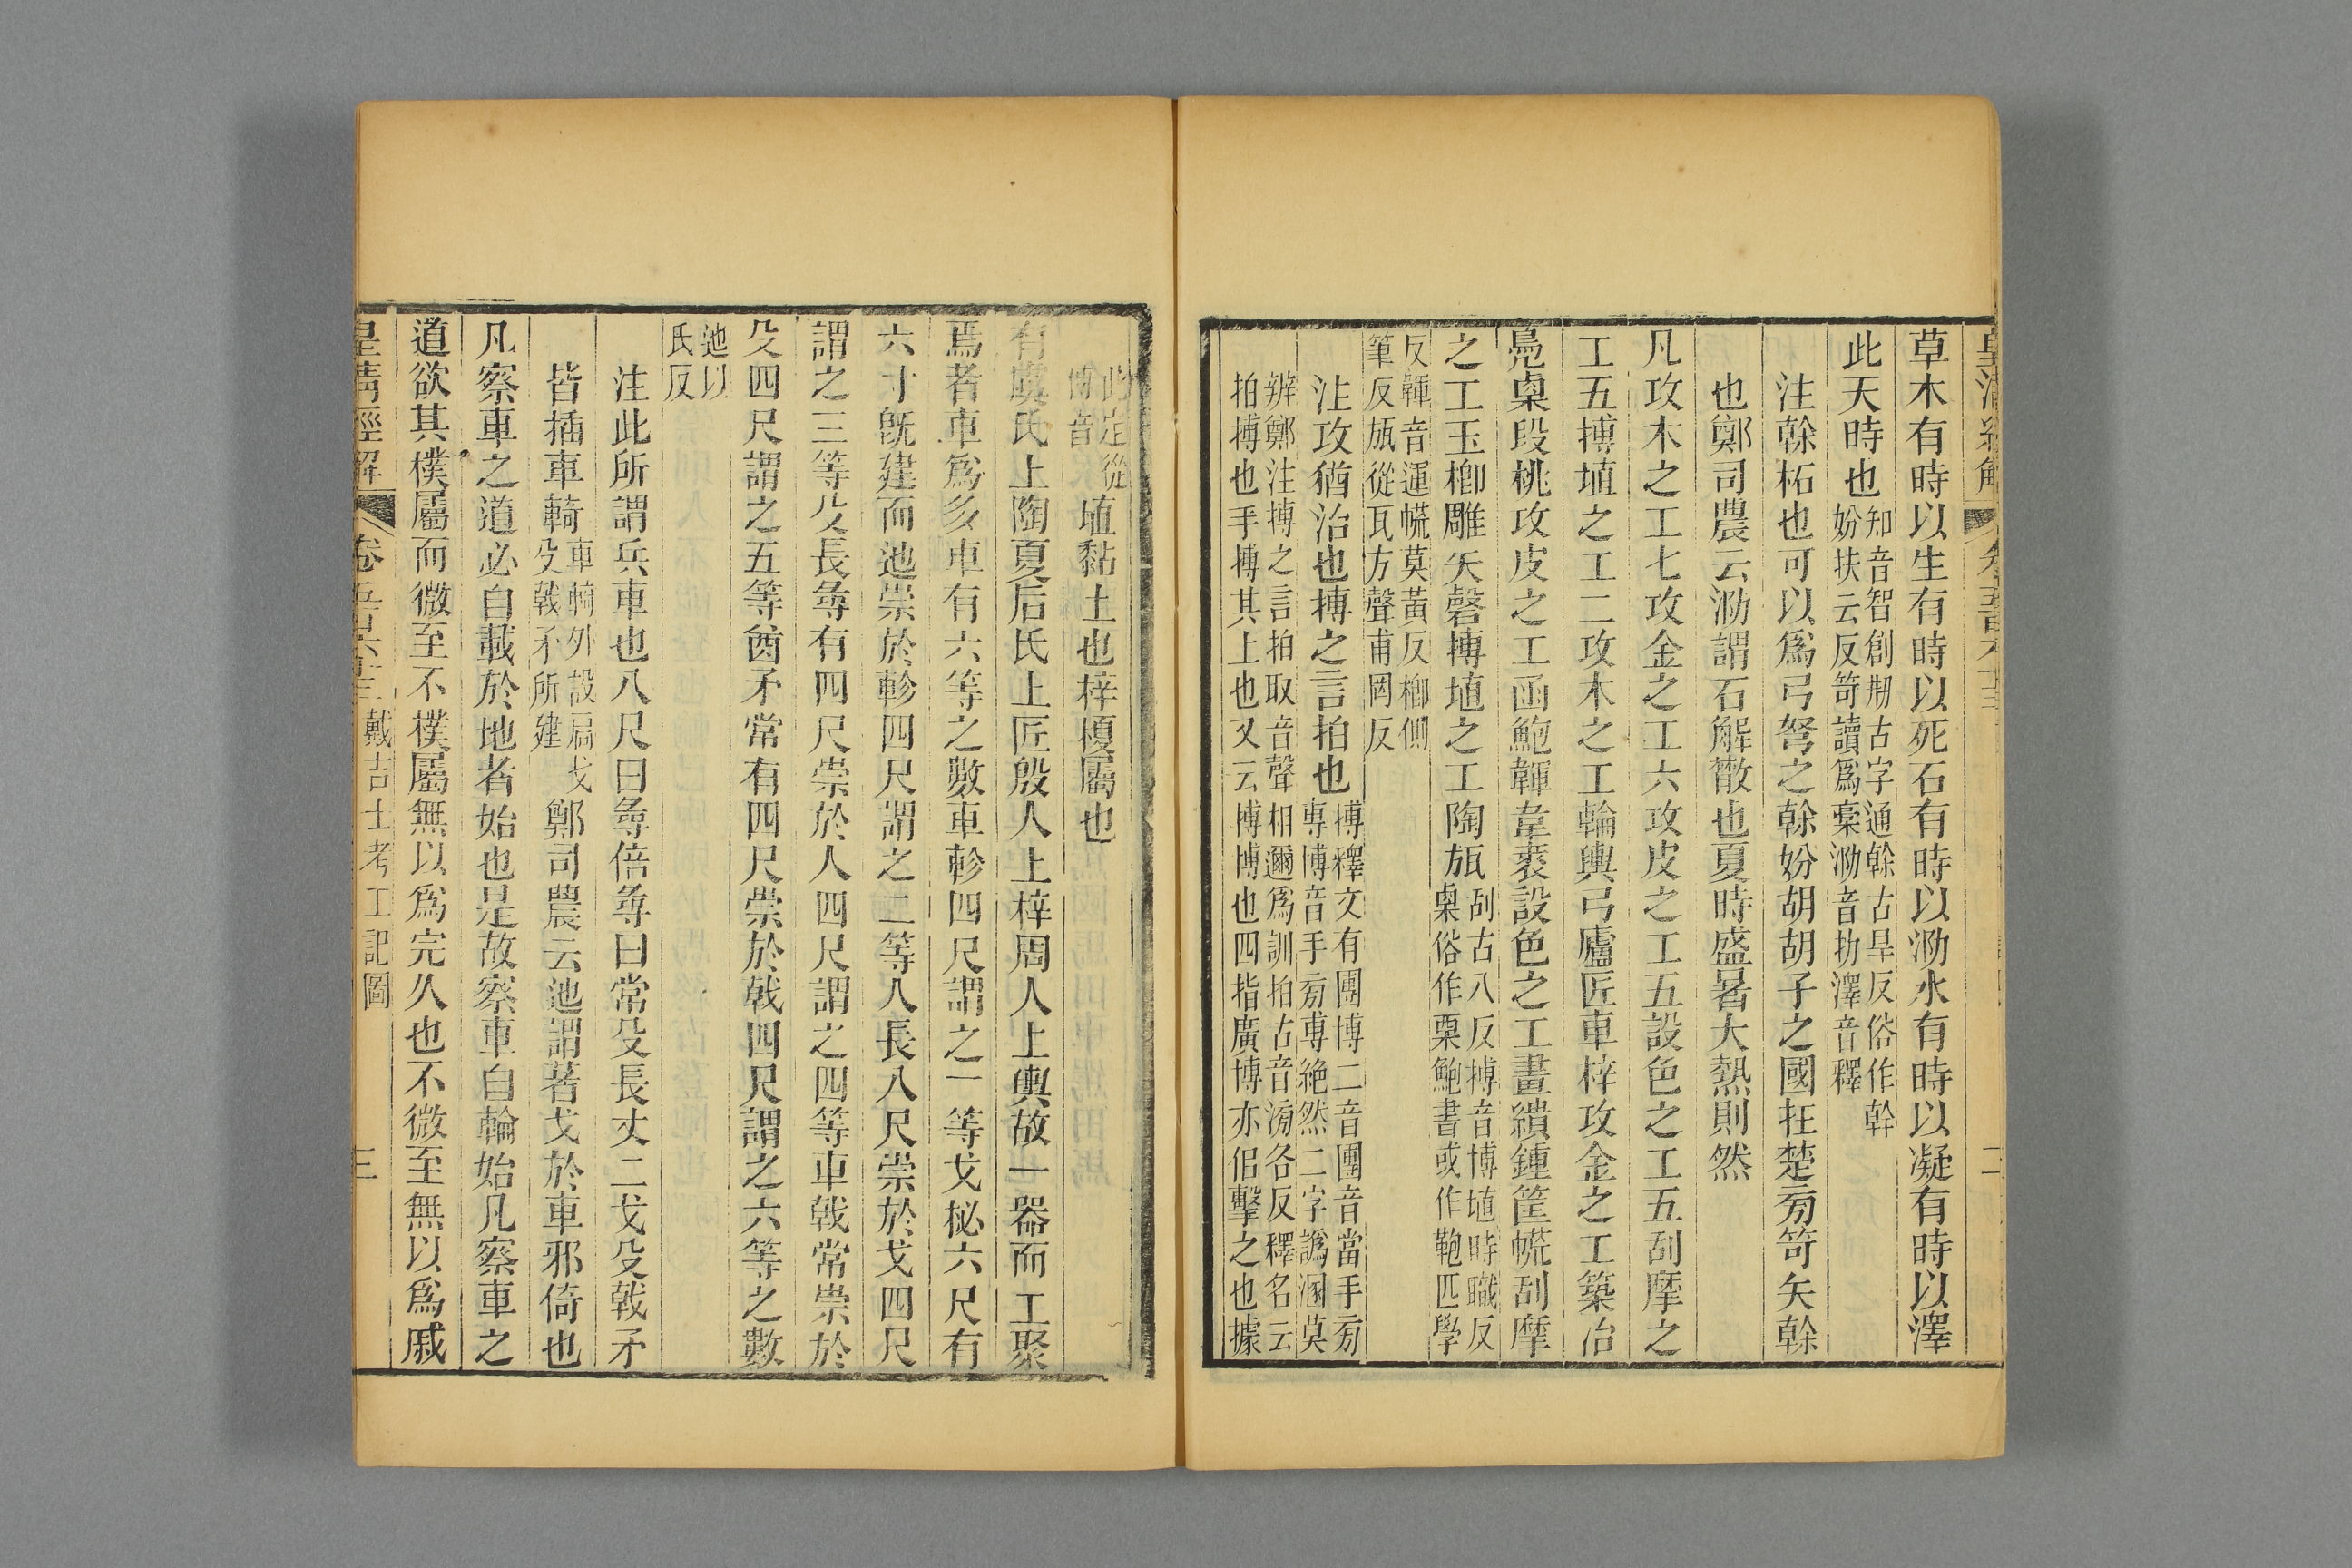 草木有時以生有時以死石有時以泐水有時以凝有時以澤
此天時也知音智創刱古字通榦古旱反俗作幹
妢扶云反笴讀爲稾泐音扐澤音釋
注榦柘也可以爲弓弩之榦妢胡胡子之國在楚㫄笴矢榦
也鄭司農云泐謂石解散也夏時盛暑大熱則然
凡攻木之工七攻金之工六攻皮之工五設色之工五刮摩之
工五搏埴之工二攻木之工輪輿弓廬匠車梓攻金之工築冶
鳧㮚段桃攻皮之工函鮑韗韋裘設色之工畫繢鍾筐㡛刮摩
之工玉楖雕矢磬搏埴之工陶瓬刮古八反搏音博埴時職反
㮚俗作栗鮑書或作鞄匹學
反韗音運㡛莫黃反楖側
筆反瓬從瓦方聲甫罔反
注攻猶治也搏之言拍也搏釋文有團博二音團音當手㫄
專博音手㫄尃絶然二字譌溷莫
辨鄭注搏之言拍取音聲相邇爲訓拍古音滂各反釋名云
拍搏也手搏其上也又云搏博也四指廣博亦佀擊之也據
此定從
博音
埴黏土也梓榎屬也
有虞氏上陶夏后氏上匠殷人上梓周人上輿故一器而工聚
焉者車爲多車有六等之數車軫四尺謂之一等戈柲六尺有
六寸旣建而迆崇於軫四尺謂之二等人長八尺崇於戈四尺
謂之三等殳長尋有四尺崇於人四尺謂之四等車戟常崇於
殳四尺謂之五等酋矛常有四尺崇於戟四尺謂之六等之數
迆以
氏反
注此所謂兵車也八尺曰尋倍尋曰常殳長丈二戈殳戟矛
皆插車輢車輢外設扃戈
殳戟矛所建
鄭司農云迆謂著戈於車邪倚也
凡察車之道必自載於地者始也是故察車自輪始凡察車之
道欲其樸屬而微至不樸屬無以爲完久也不微至無以爲戚
皇清經解 卷五百六十三 戴吉士考工記圖 三